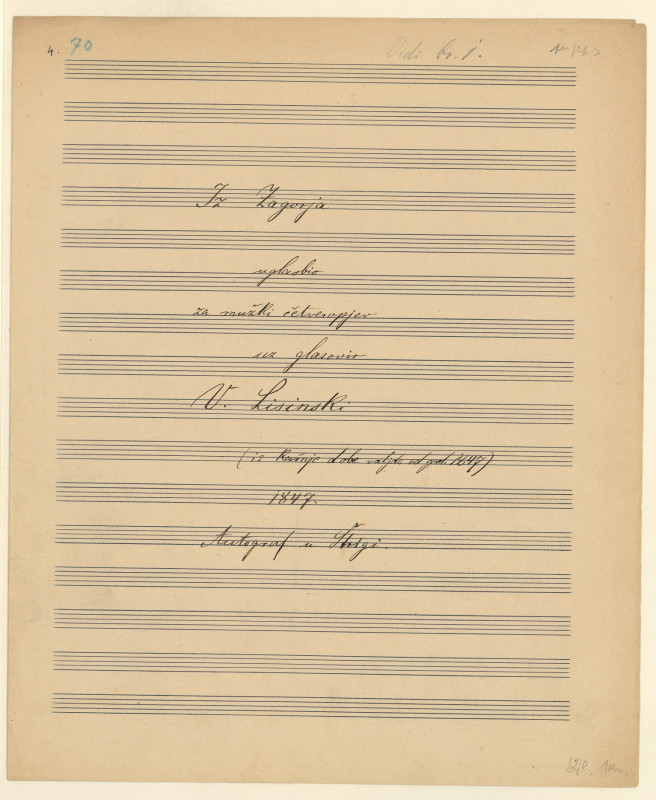 4. 70 Vidi br. 1.
Iz Zagorja
uglasbio
za mužki četveropjev
uz glasovir
V. Lisinski
(iz kasnije dobe valjda od god. 1647)
1847.
Autograf u Štrigi.